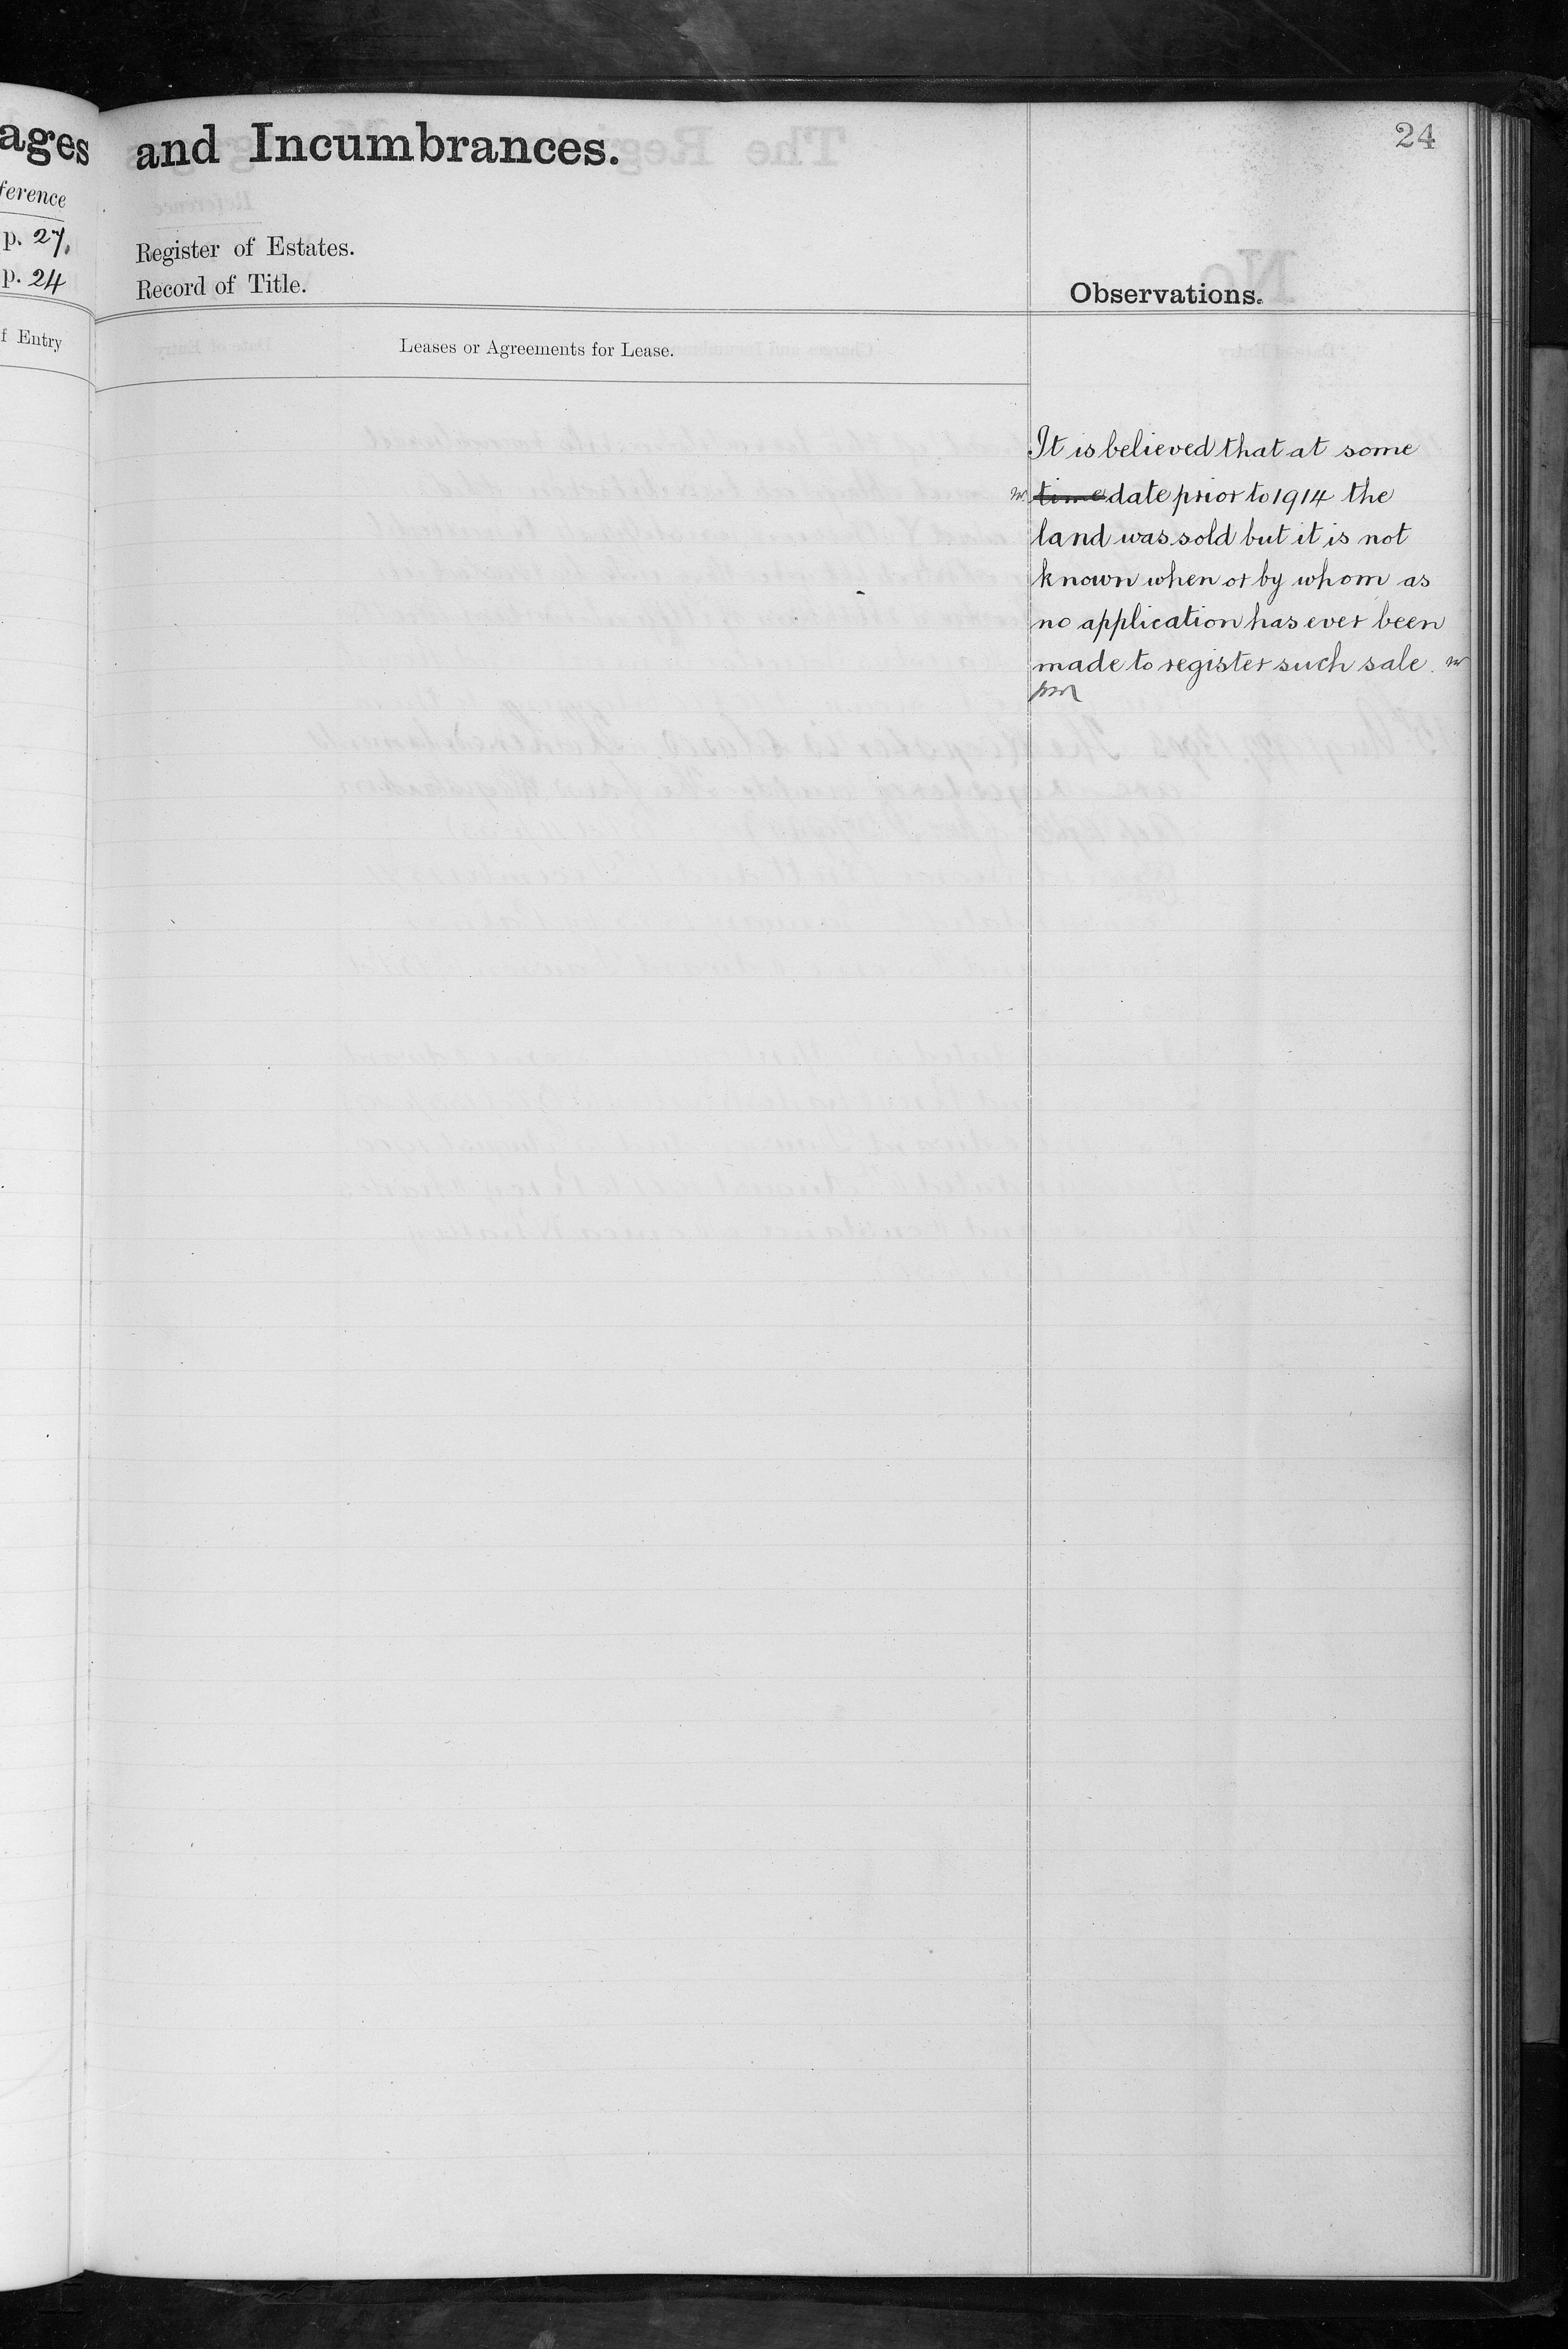 ages
ference
p. 27.
p. 24
f Entry
and Incumbrances.
24
Register of Estates.
Record of Title.
Observations.
Leases or Agreements for Lease.
It is believed that at some
time date prior to 1914 the
land was sold but it is not
known when or by whom as
no application has ever been
made to register such sale.